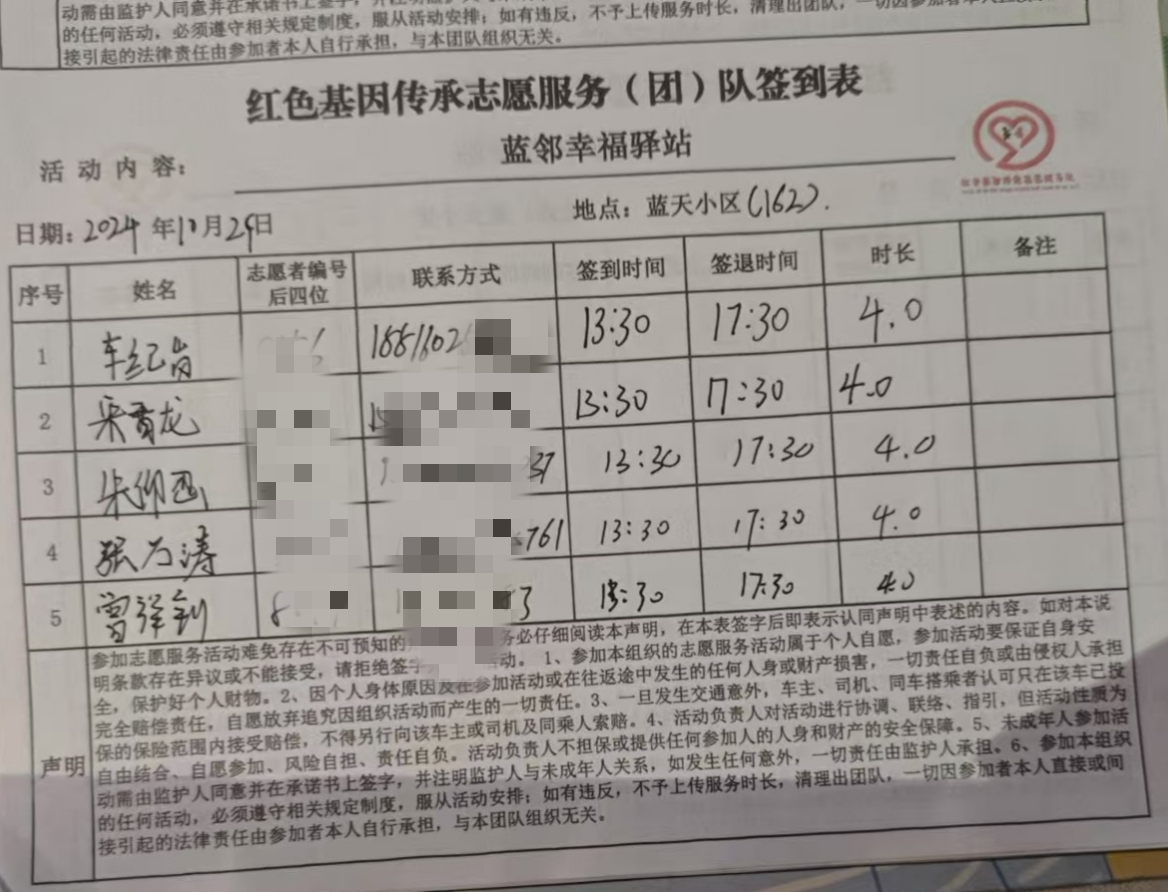 动需由监护人同意并在承诺书上签字，并注明监护人与
的任何活动，必须遵守相关规定制度，服从活动安排；如有违反，不予上传服务时长，清理出团队，一切因参加者本人
接引起的法律责任由参加者本人自行承担，与本团队组织无关。
红色基因传承志愿服务（团）队签到表
活动内容： 蓝邻幸福驿站
日期：2024年10月29日 地点：蓝天小区(162).
序号 姓名 志愿者编号后四位 联系方式 签到时间 签退时间 时长 备注
1 车纪岗 1881602 13:30 17:30 4.0
2 龙 13:30 17:30 4.0
3 朱仰西 37 13:30 17:30 4.0
4 张乃涛 761 13:30 17:30 4.0
5 曾祥钊 3 13:30 17:30 4.0
声明
参加志愿服务活动难免存在不可预知的 务必仔细阅读本声明，在本表签字后即表示认同声明中表述的内容。如对本说
明条款存在异议或不能接受，请拒绝签字 活动。1、参加本组织的志愿服务活动属于个人自愿，参加活动要保证自身安
全，保护好个人财物。2、因个人身体原因及在参加活动或在往返途中发生的任何人身或财产损害，一切责任自负或由侵权人承担
完全赔偿责任，自愿放弃追究因组织活动而产生的一切责任。3、一旦发生交通意外，车主、司机、同车搭乘者认可只在该车已投
保的保险范围内接受赔偿，不得另行向该车主或司机及同乘人索赔。4、活动负责人对活动进行协调、联络、指引，但活动性质为
自由结合、自愿参加、风险自担、责任自负。活动负责人不担保或提供任何参加人的人身和财产的安全保障。5、未成年人参加活
动需由监护人同意并在承诺书上签字，并注明监护人与未成年人关系，如发生任何意外，一切责任由监护人承担。6、参加本组织
的任何活动，必须遵守相关规定制度，服从活动安排；如有违反，不予上传服务时长，清理出团队，一切因参加者本人直接或间
接引起的法律责任由参加者本人自行承担，与本团队组织无关。